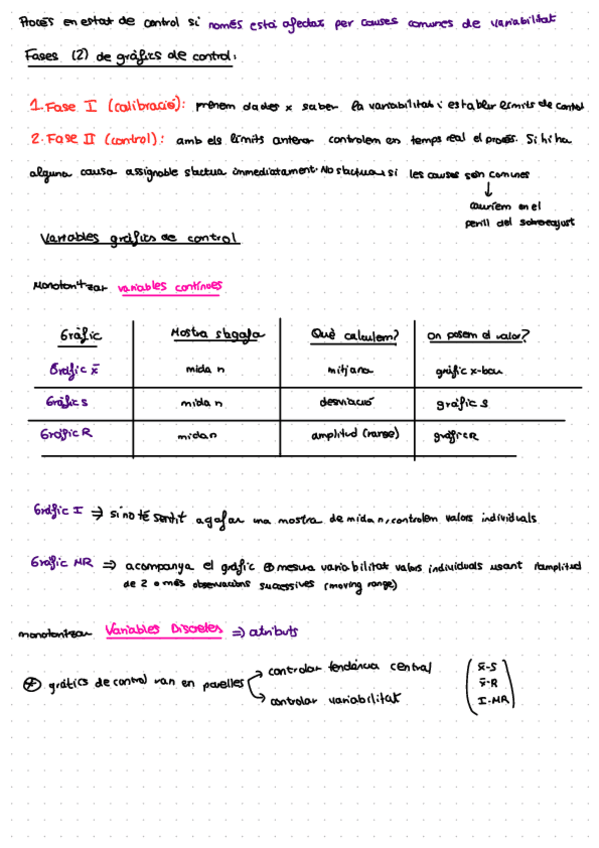 Procés en estat de control si només està afectat per causes comunes de variabilitat
Fases (2) de gràfics de control:
1. Fase I (calibració): prenem dades x saber la variabilitat i establir límits de control
2. Fase II (control): amb els límits anterior controlem en temps real el procés. Si hi ha
alguna causa assignable s'actua immediatament. No s'actua si les causes són comunes
↓
cauríem en el
perill del sobreajust
Variables gràfics de control
Monotoritzar variables contínues
Gràfic Mostra s'agafa Què calculem? On posem el valor?
Gràfic x̄ mida n mitjana gràfic x-bar
Gràfic S mida n desviació gràfic S
Gràfic R mida n amplitud (range) gràfic R
Gràfic I ⇒ si no té sentit agafar una mostra de mida n, controlem valors individuals
Gràfic MR ⇒ acompanya el gràfic I mesura variabilitat valors individuals usant l'amplitud
de 2 o més observacions successives (moving range)
monotoritzar Variables Discretes ⇒ atributs
gràfics de control van en parelles → controlar tendència central
→ controlar variabilitat
(x̄-S
x̄-R
I-MR)